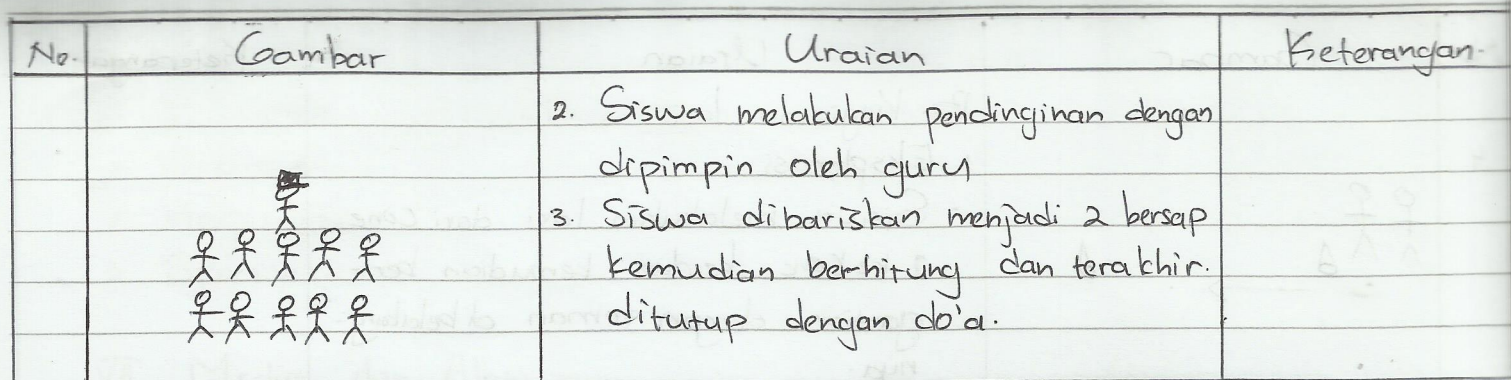 No. Gambar Uraian Keterangan.
2. Siswa melakukan pendinginan dengan
dipimpin oleh guru
3. Siswa dibariskan menjadi 2 bersap
kemudian berhitung dan terakhir.
ditutup dengan do'a.